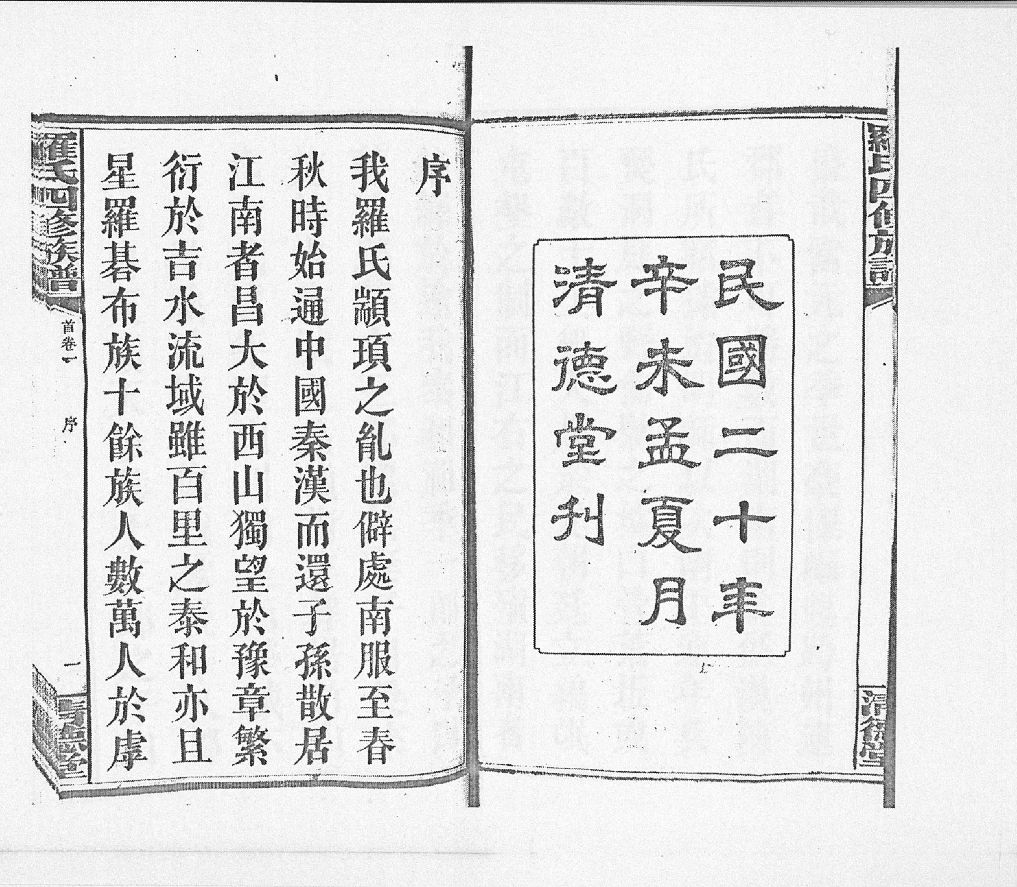 羅氏四修族譜
清德堂
民國二十年
辛未孟夏月
清德堂刋
序
我羅氏顓頊之亂也僻處南服至春
秋時始通中國秦漢而還子孫散居
江南者昌大於西山獨望於豫章繁
衍於吉水流域雖百里之泰和亦且
星羅碁布族十餘族人數萬人於虖
羅氏四修族譜
首卷一
序
一
清德堂